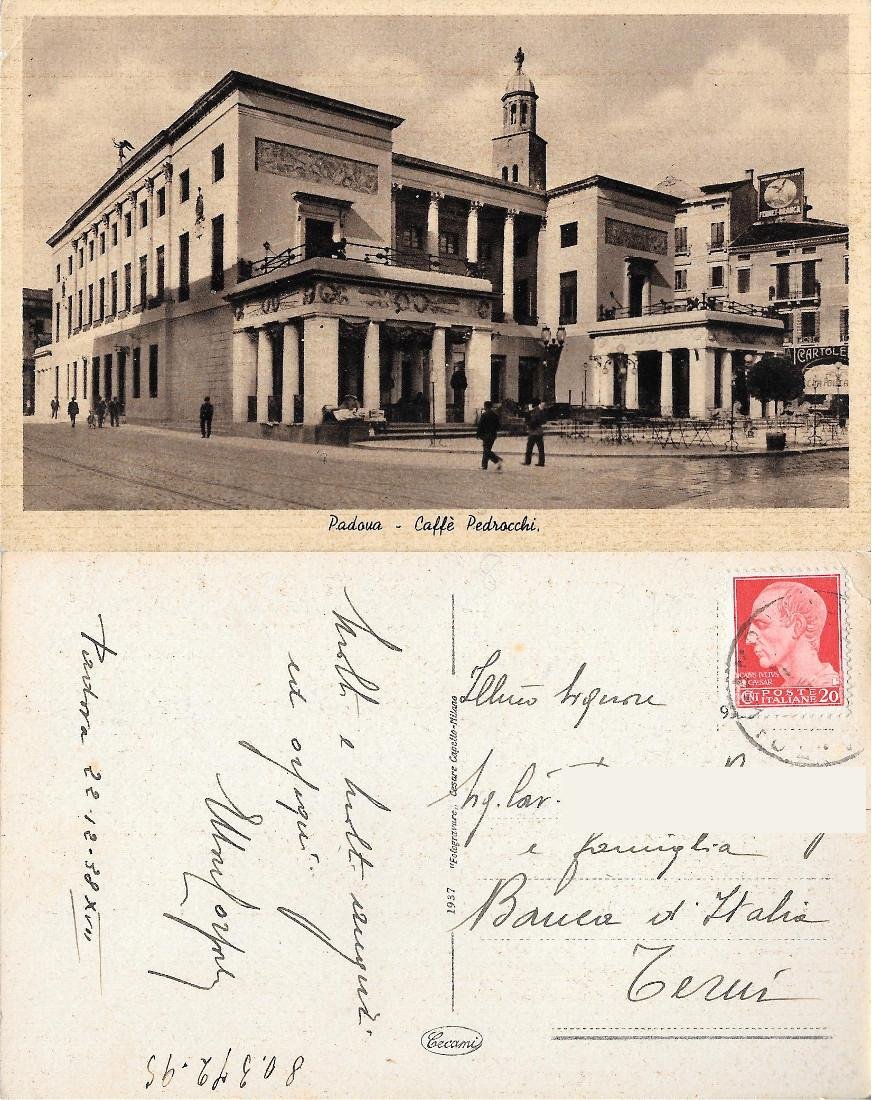 FERNET-BRANCA
CARTOLE
Padova - Caffè Pedrocchi.
Padova 22-12-38 XVII
Molti e molti auguri
ed ossequi
80.372.95
1937 "Fotogravure", Cesare Capello-Milano
Cecami
CAIVS IVLIVS
CAESAR
CENT POSTE
ITALIANE 20
Illmo Signore
Cav.
e famiglia
Banca d'Italia
Terni